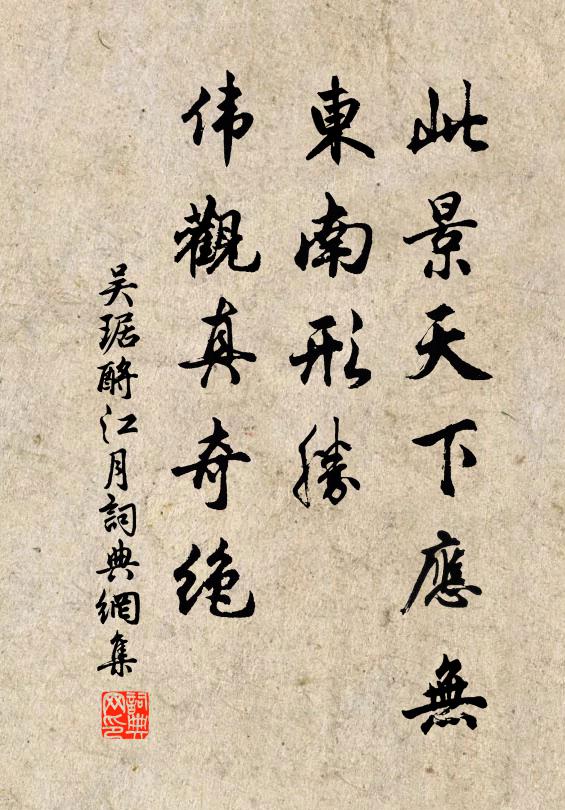 此景天下應無
東南形勝
伟觀真奇绝
吴琚酹江月詞典網集
詞典
网印